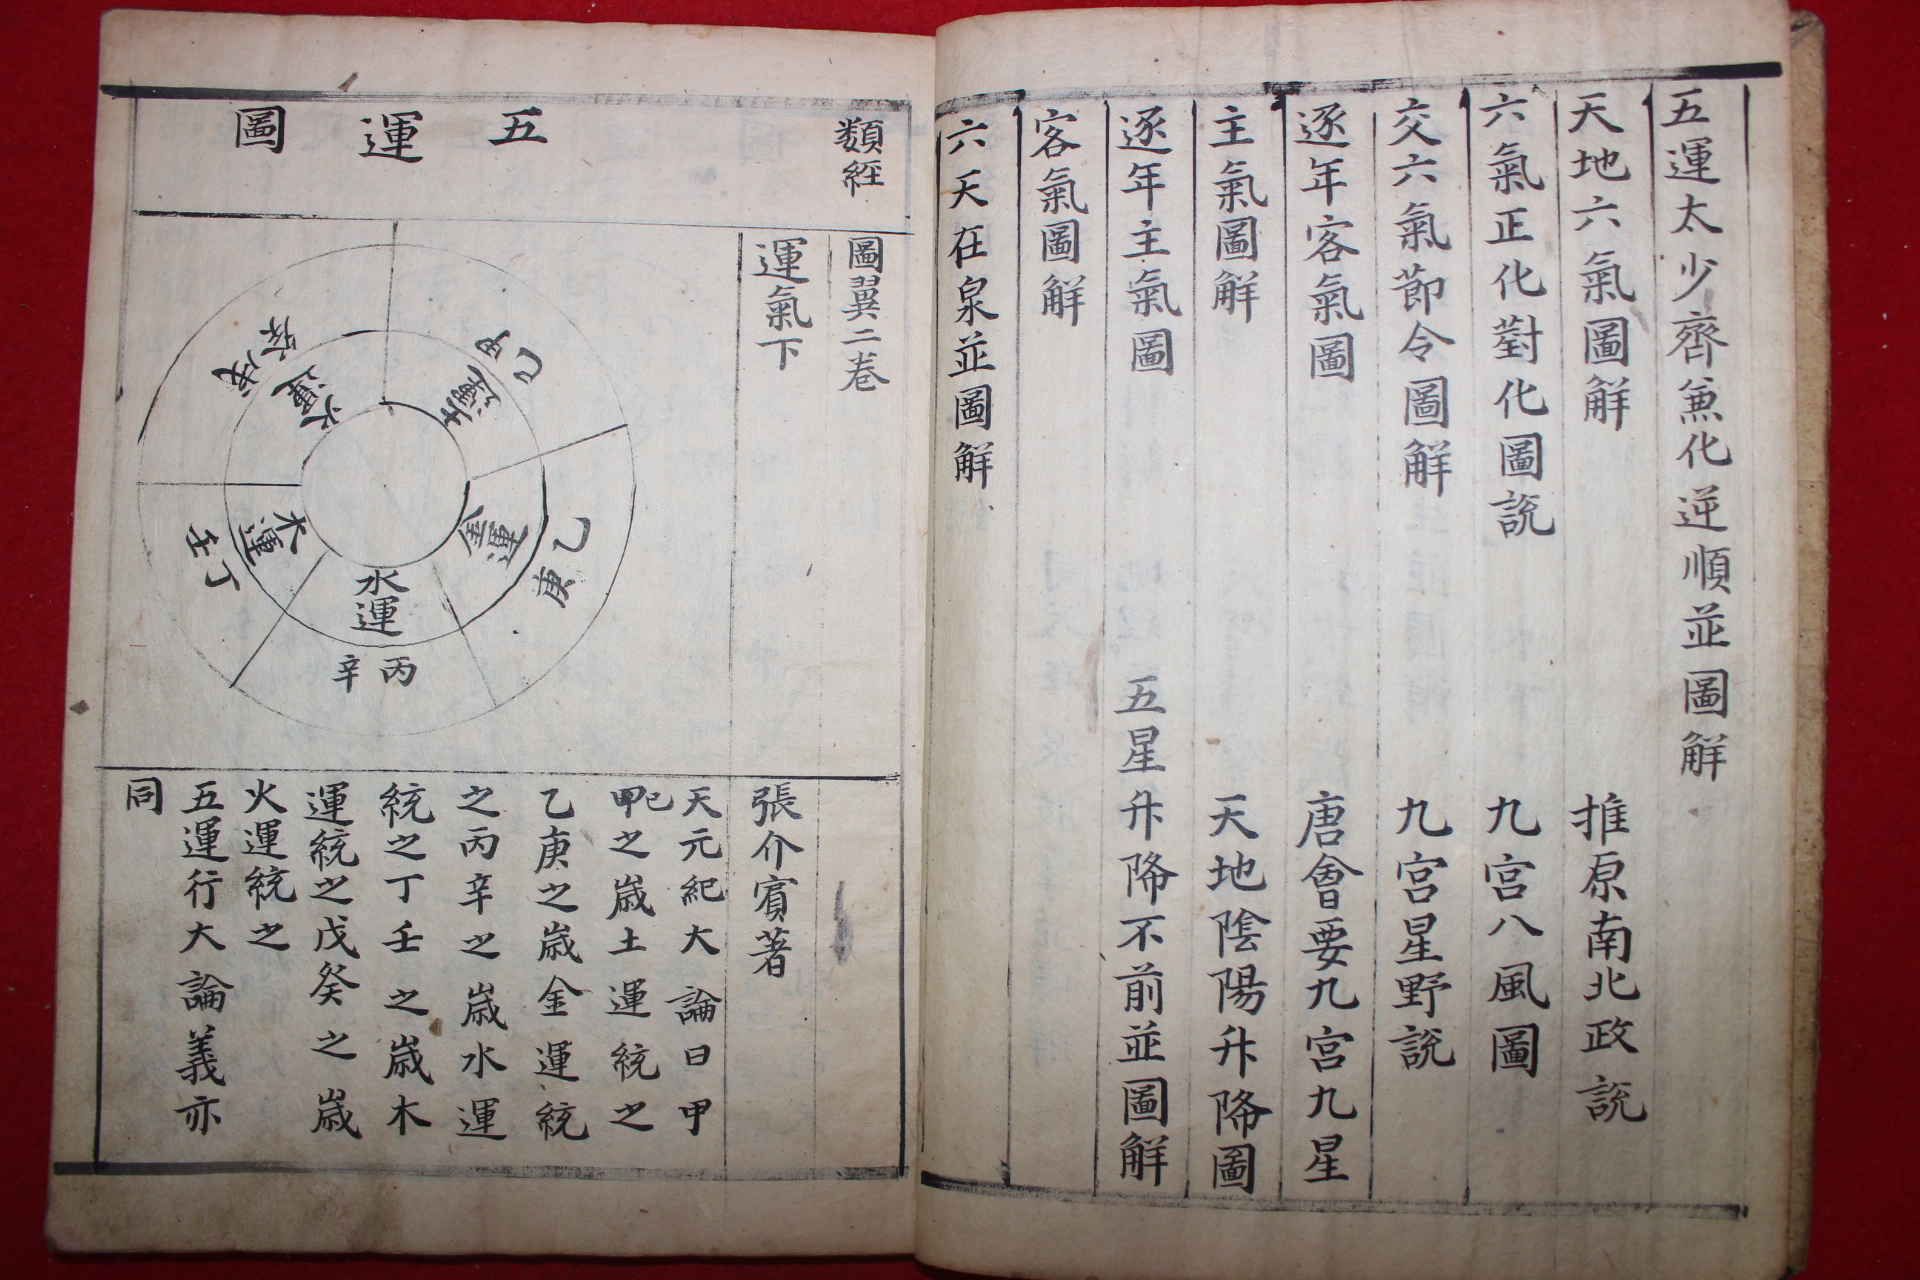 五運太少齊兼化逆順並圖觧
天地六氣圖觧 推原南北政說
六氣正化對化圖說 九宮八風圖
交六氣節令圖觧 九宮星野說
逐年客氣圖 唐會要九宮九星
主氣圖觧 天地陰陽升降圖
逐年主氣圖 五星升降不前並圖觧
客氣圖觧
六天在泉並圖觧
類經
圖翼二卷
運氣下
張介賓著
五運圖
甲己
土運
乙庚
金運
丙辛
水運
丁壬
木運
戊癸
火運
天元紀大論曰甲
甲己之歲土運統之
乙庚之歲金運統
之丙辛之歲水運
統之丁壬之歲木
運統之戊癸之歲
火運統之
五運行大論義亦
同